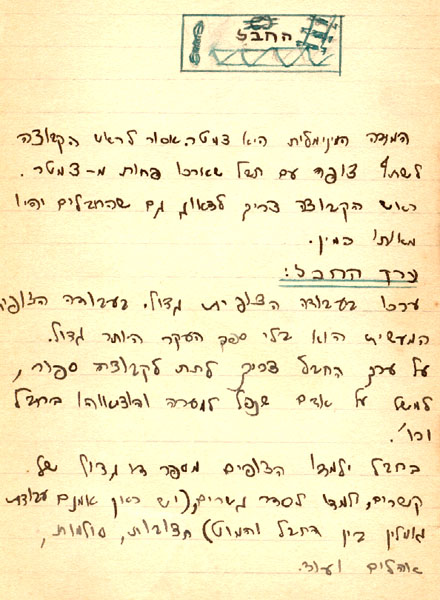 החבל
המדה המינימלית היא 2 מטר. אסור לראש הקבוצה
לשתף צופה עם חבל שארכו פחות מ-2 מטר.
ראש הקבוצה צריך לדאוג גם שהחבלים יהיו
מאותו המין.
ערך החבל:
ערכו בעבודה הצופית גדול. בעבודה הצופית
המעשית הוא בלי ספק העקר היותר גדול.
על ערך החבל צריך לתת לקבוצה ספור,
למשל על אדם שנפל למערה והוצאוהו בחבל
וכו'.
בחבל ילמדו הצופים מספר די גדול של
קשרים, ילמדו לסדר גשרים, (יש כאן אמנם עבודת
גומלין בין החבל והמוט) חצובות, סולמות,
אהלים ועוד.